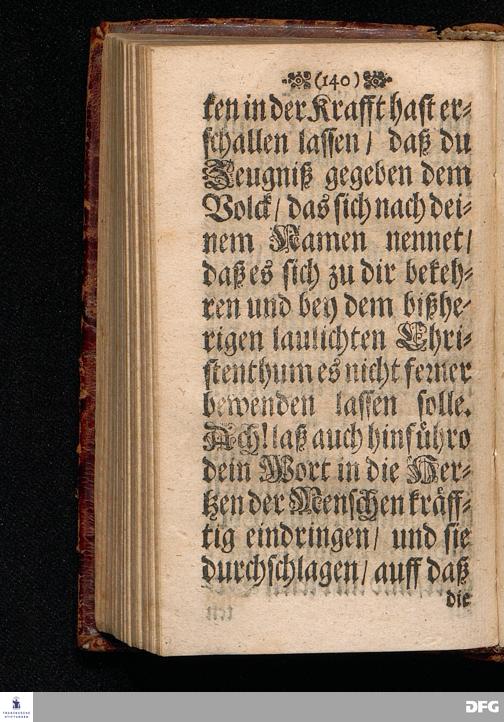 (140)
ken in der Krafft hast er-
schallen lassen / daß du
Zeugniß gegeben dem
Volck / das sich nach dei-
nem Namen nennet /
daß es sich zu dir bekeh-
ren und bey dem bißhe-
rigen laulichten Chri-
stenthum es nicht ferner
bewenden lassen solle.
Ach! laß auch hinführo
dein Wort in die Her-
tzen der Menschen kräff-
tig eindringen / und sie
durchschlagen / auff daß
die
FRANCKESCHE STIFTUNGEN
DFG